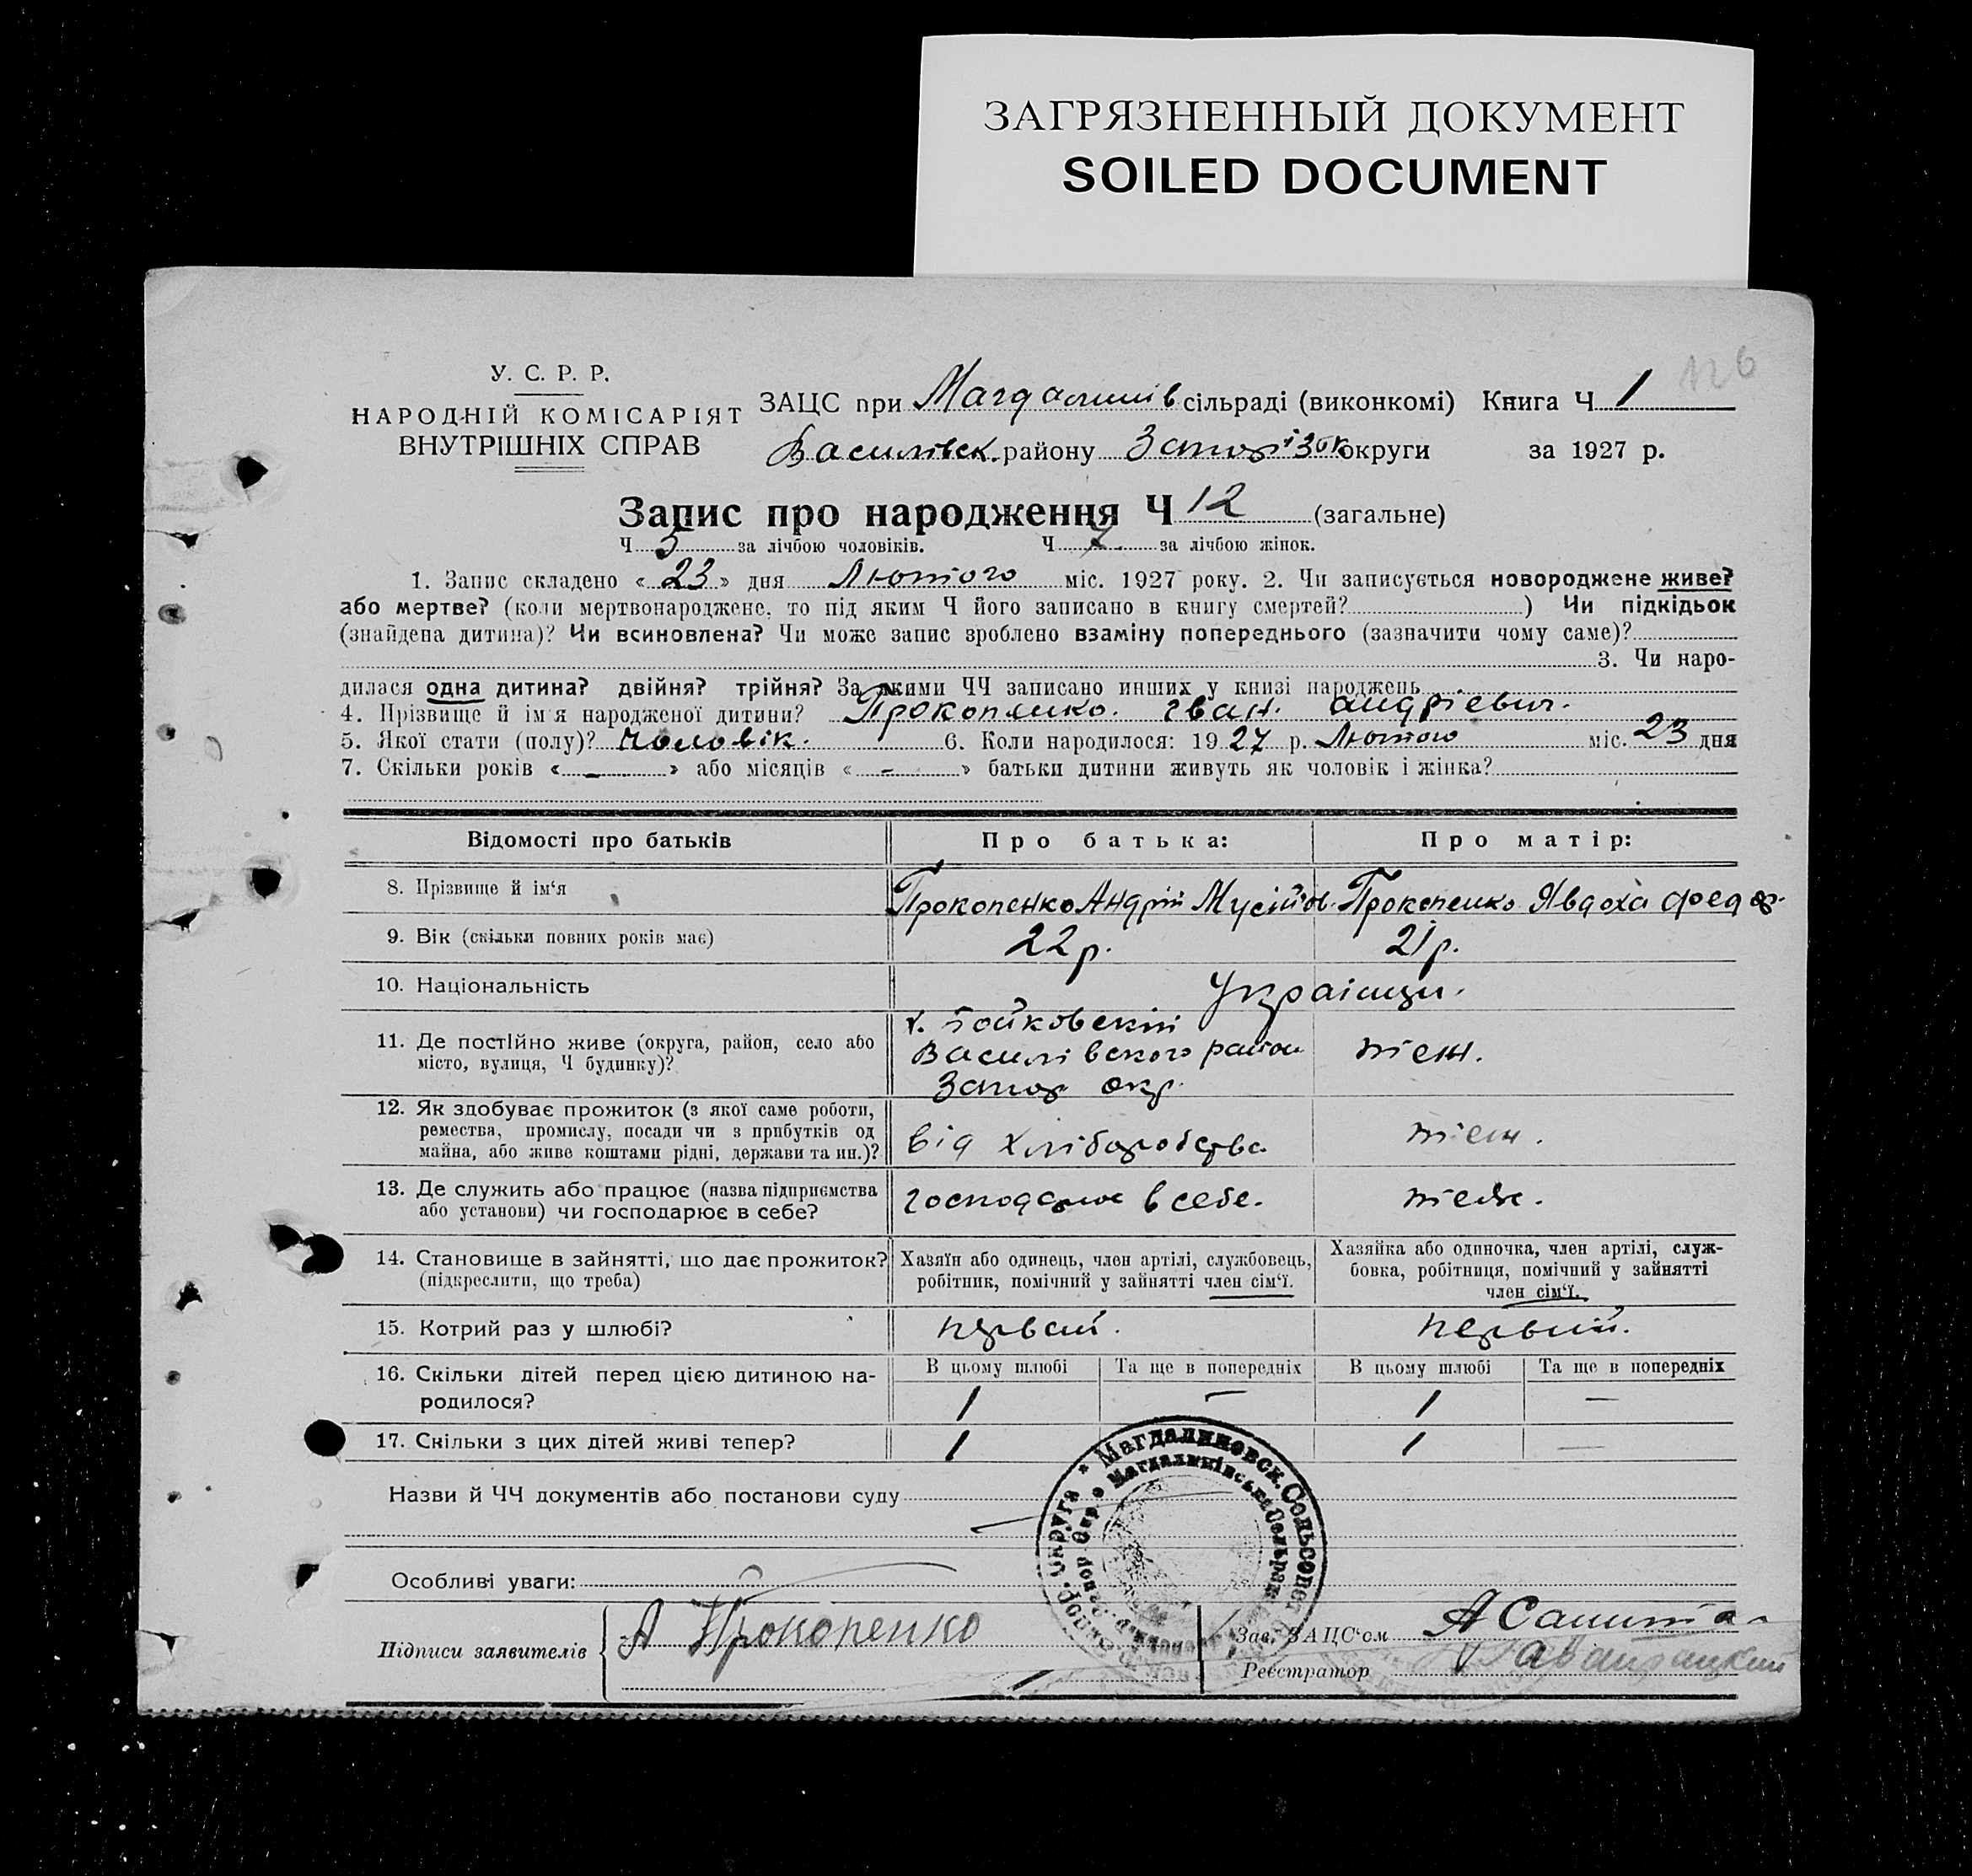 ЗАГРЯЗНЕННЫЙ ДОКУМЕНТ
SOILED DOCUMENT
126
У. С. Р. Р.
НАРОДНІЙ КОМІСАРІЯТ
ВНУТРІШНІХ СПРАВ
ЗАЦС при Магдалинів сільраді (виконкомі) Книга Ч 1
Василівск. району Запорізок округи за 1927 р.
Запис про народження Ч 12 (загальне)
Ч 5 за лічбою чоловіків. Ч 7 за лічбою жінок.
1. Запис складено « 23 » дня Лютого міс. 1927 року. 2. Чи записується новороджене живе?
або мертве? (коли мертвонароджене, то під яким Ч його записано в книгу смертей? ) Чи підкідьок
(знайдена дитина)? Чи всиновлена? Чи може запис зроблено взаміну попереднього (зазначити чому саме)?
3. Чи наро-
дилася одна дитина? двійня? трійня? За якими ЧЧ записано инших у книзі народжень
4. Прізвище й ім'я народженої дитини? Прокопенко. Іван. Андрієвич.
5. Якої стати (полу)? Чоловік. 6. Коли народилося: 19 27 р. Лютого міс. 23 дня
7. Скільки років « — » або місяців « — » батьки дитини живуть як чоловік і жінка?
Відомості про батьків Про батька: Про матір:
8. Прізвище й ім'я Прокопенко Андрій Мусійов. Прокопенко Явдоха Федор.
9. Вік (скільки повних років має) 22 р. 21 р.
10. Національність Українци.
11. Де постійно живе (округа, район, село або
місто, вулиця, Ч будинку)?
х. Бойковский
Василівского район
Запор окр.
теж.
12. Як здобуває прожиток (з якої саме роботи,
ремества, промислу, посади чи з прибутків од
майна, або живе коштами рідні, держави та ин.)?
від хліборобства
теж.
13. Де служить або працює (назва підприємства
або установи) чи господарює в себе?
господарює в себе.
теж.
14. Становище в зайнятті, що дає прожиток?
(підкреслити, що треба)
Хазяїн або одинець, член артілі, службовець,
робітник, помічний у зайнятті член сім'ї.
Хазяйка або одиночка, член артілі, служ-
бовка, робітниця, помічний у зайнятті
член сім'ї.
15. Котрий раз у шлюбі? первий. первий.
16. Скільки дітей перед цією дитиною на-
родилося?
В цьому шлюбі Та ще в попередніх В цьому шлюбі Та ще в попередніх
1 — 1 —
17. Скільки з цих дітей живі тепер? 1 1 —
Назви й ЧЧ документів або постанови суду
Особливі уваги:
Підписи заявителів А Прокопенко
Зав. ЗАЦС'ом
Реєстратор
Магдалиновск. Сельсовет